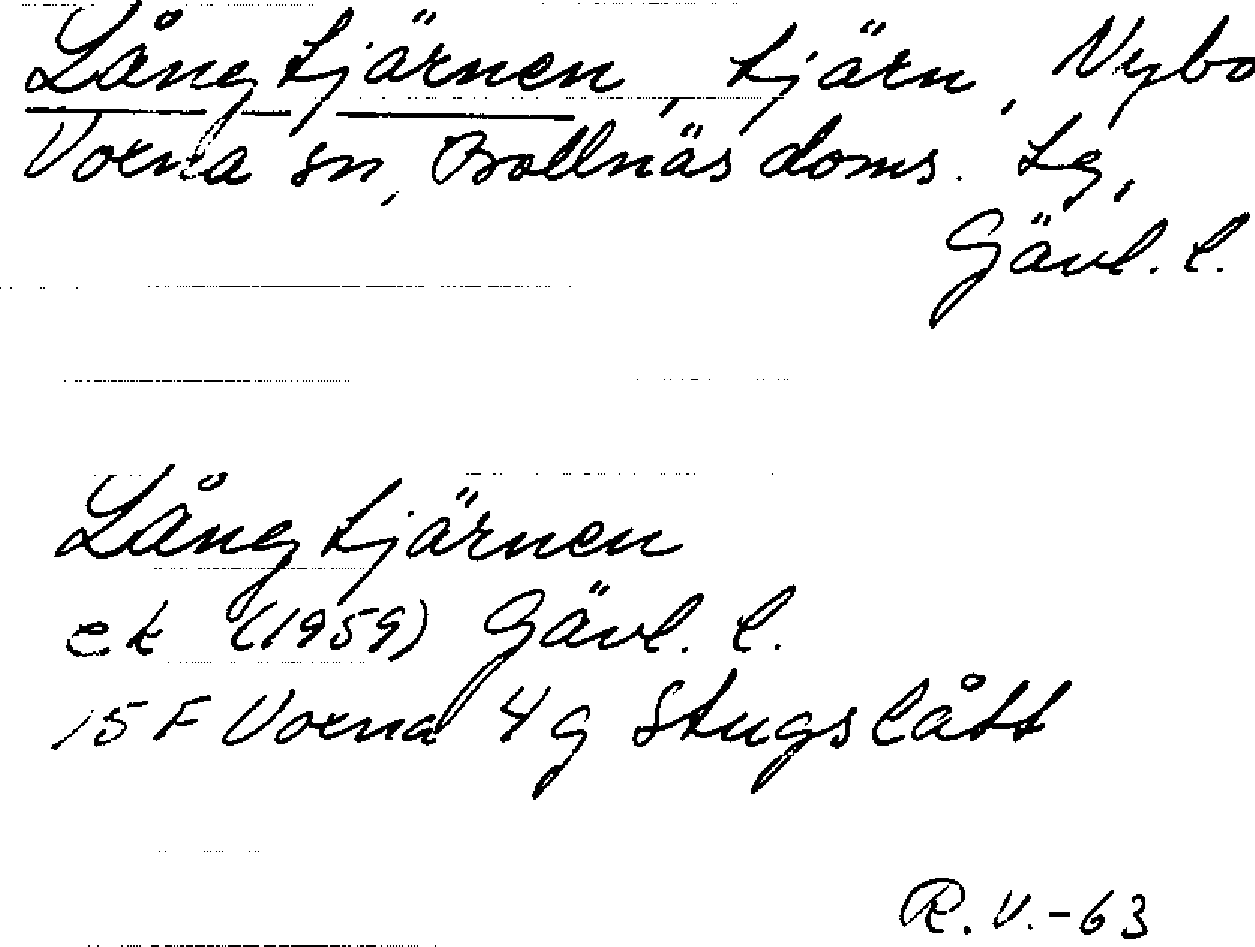 Långtjärnen, tjärn, Nybo
Voxna sn, Bollnäs doms. tg,
Gävl. l.
Långtjärnen
ek (1959) Gävl. l.
15 F Voxna 4 g Stugslått
R.V.-63